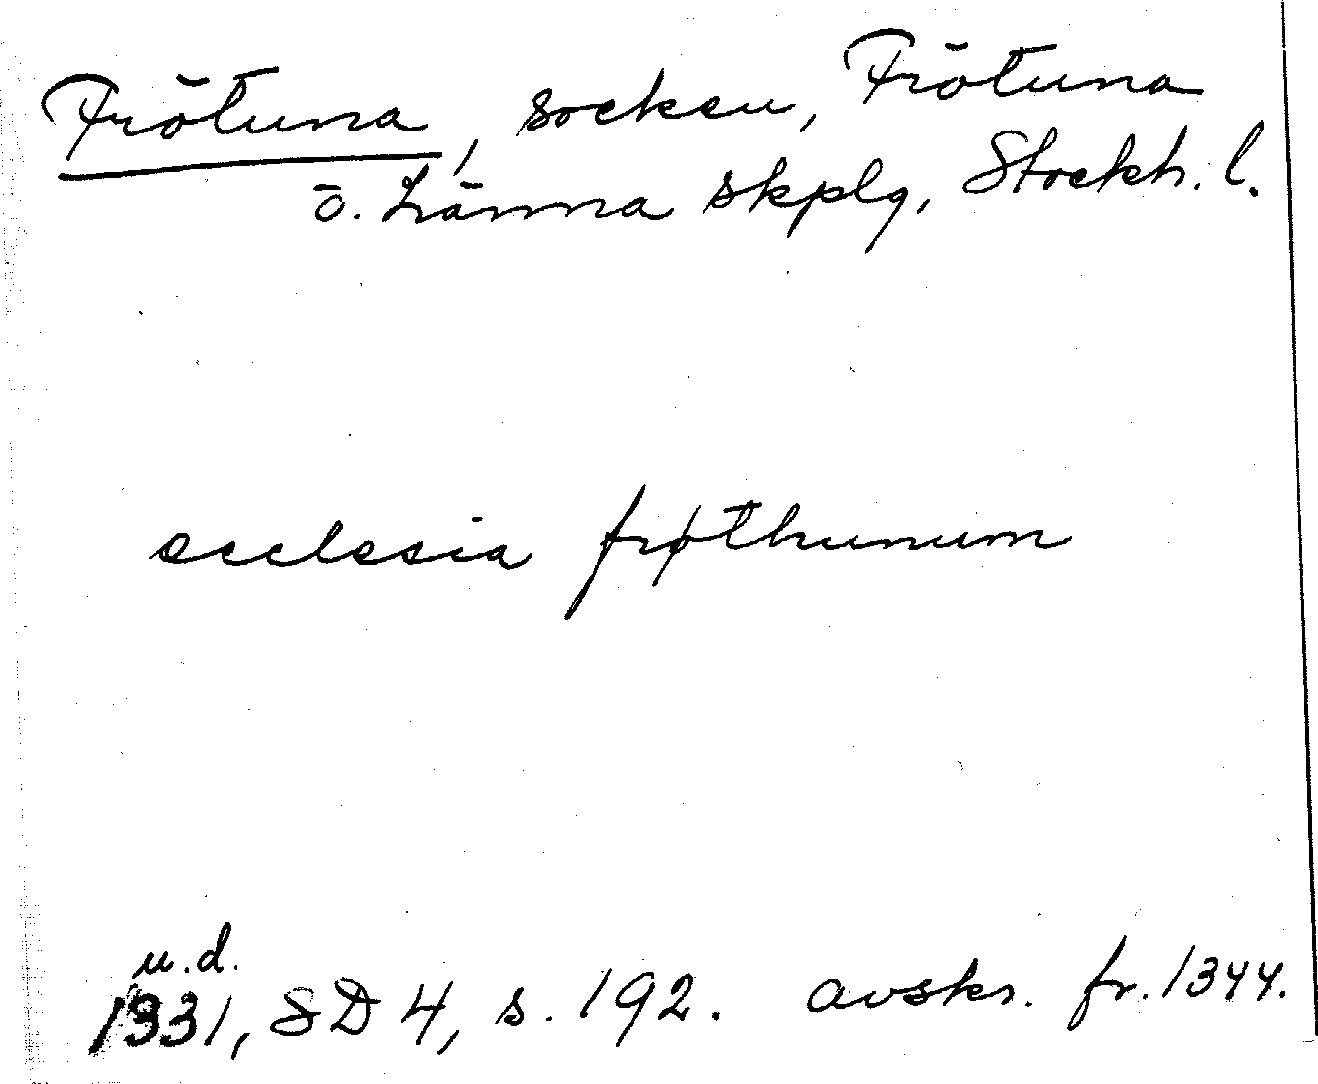 Frötuna, socken, Frötuna
o. Länna skplg, Stockh. l.
ecclesia frøthunum
u.d.
1331, SD 4, s. 192. avskr. fr. 1344.